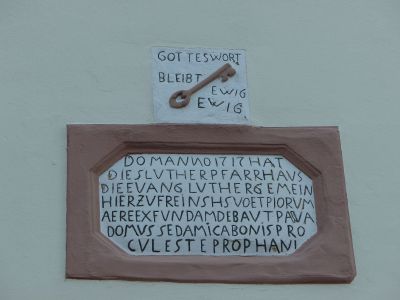 GOTTESWORT
BLEIBT
EWIG
EWIG
DOMANNO1717HAT
DIESLUTHERPFARRHAUS
DIEEVANGLUTHERGEMEIN
HIERZUFREINSHSVOETPIORUM
AEREEXFUNDAMDEBAVTPAVA
DOMUSSEDAMICABONISPRO
CULESTEPROPHANI